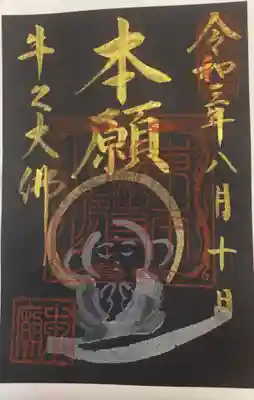 令和三年八月十日
本願
牛久大佛